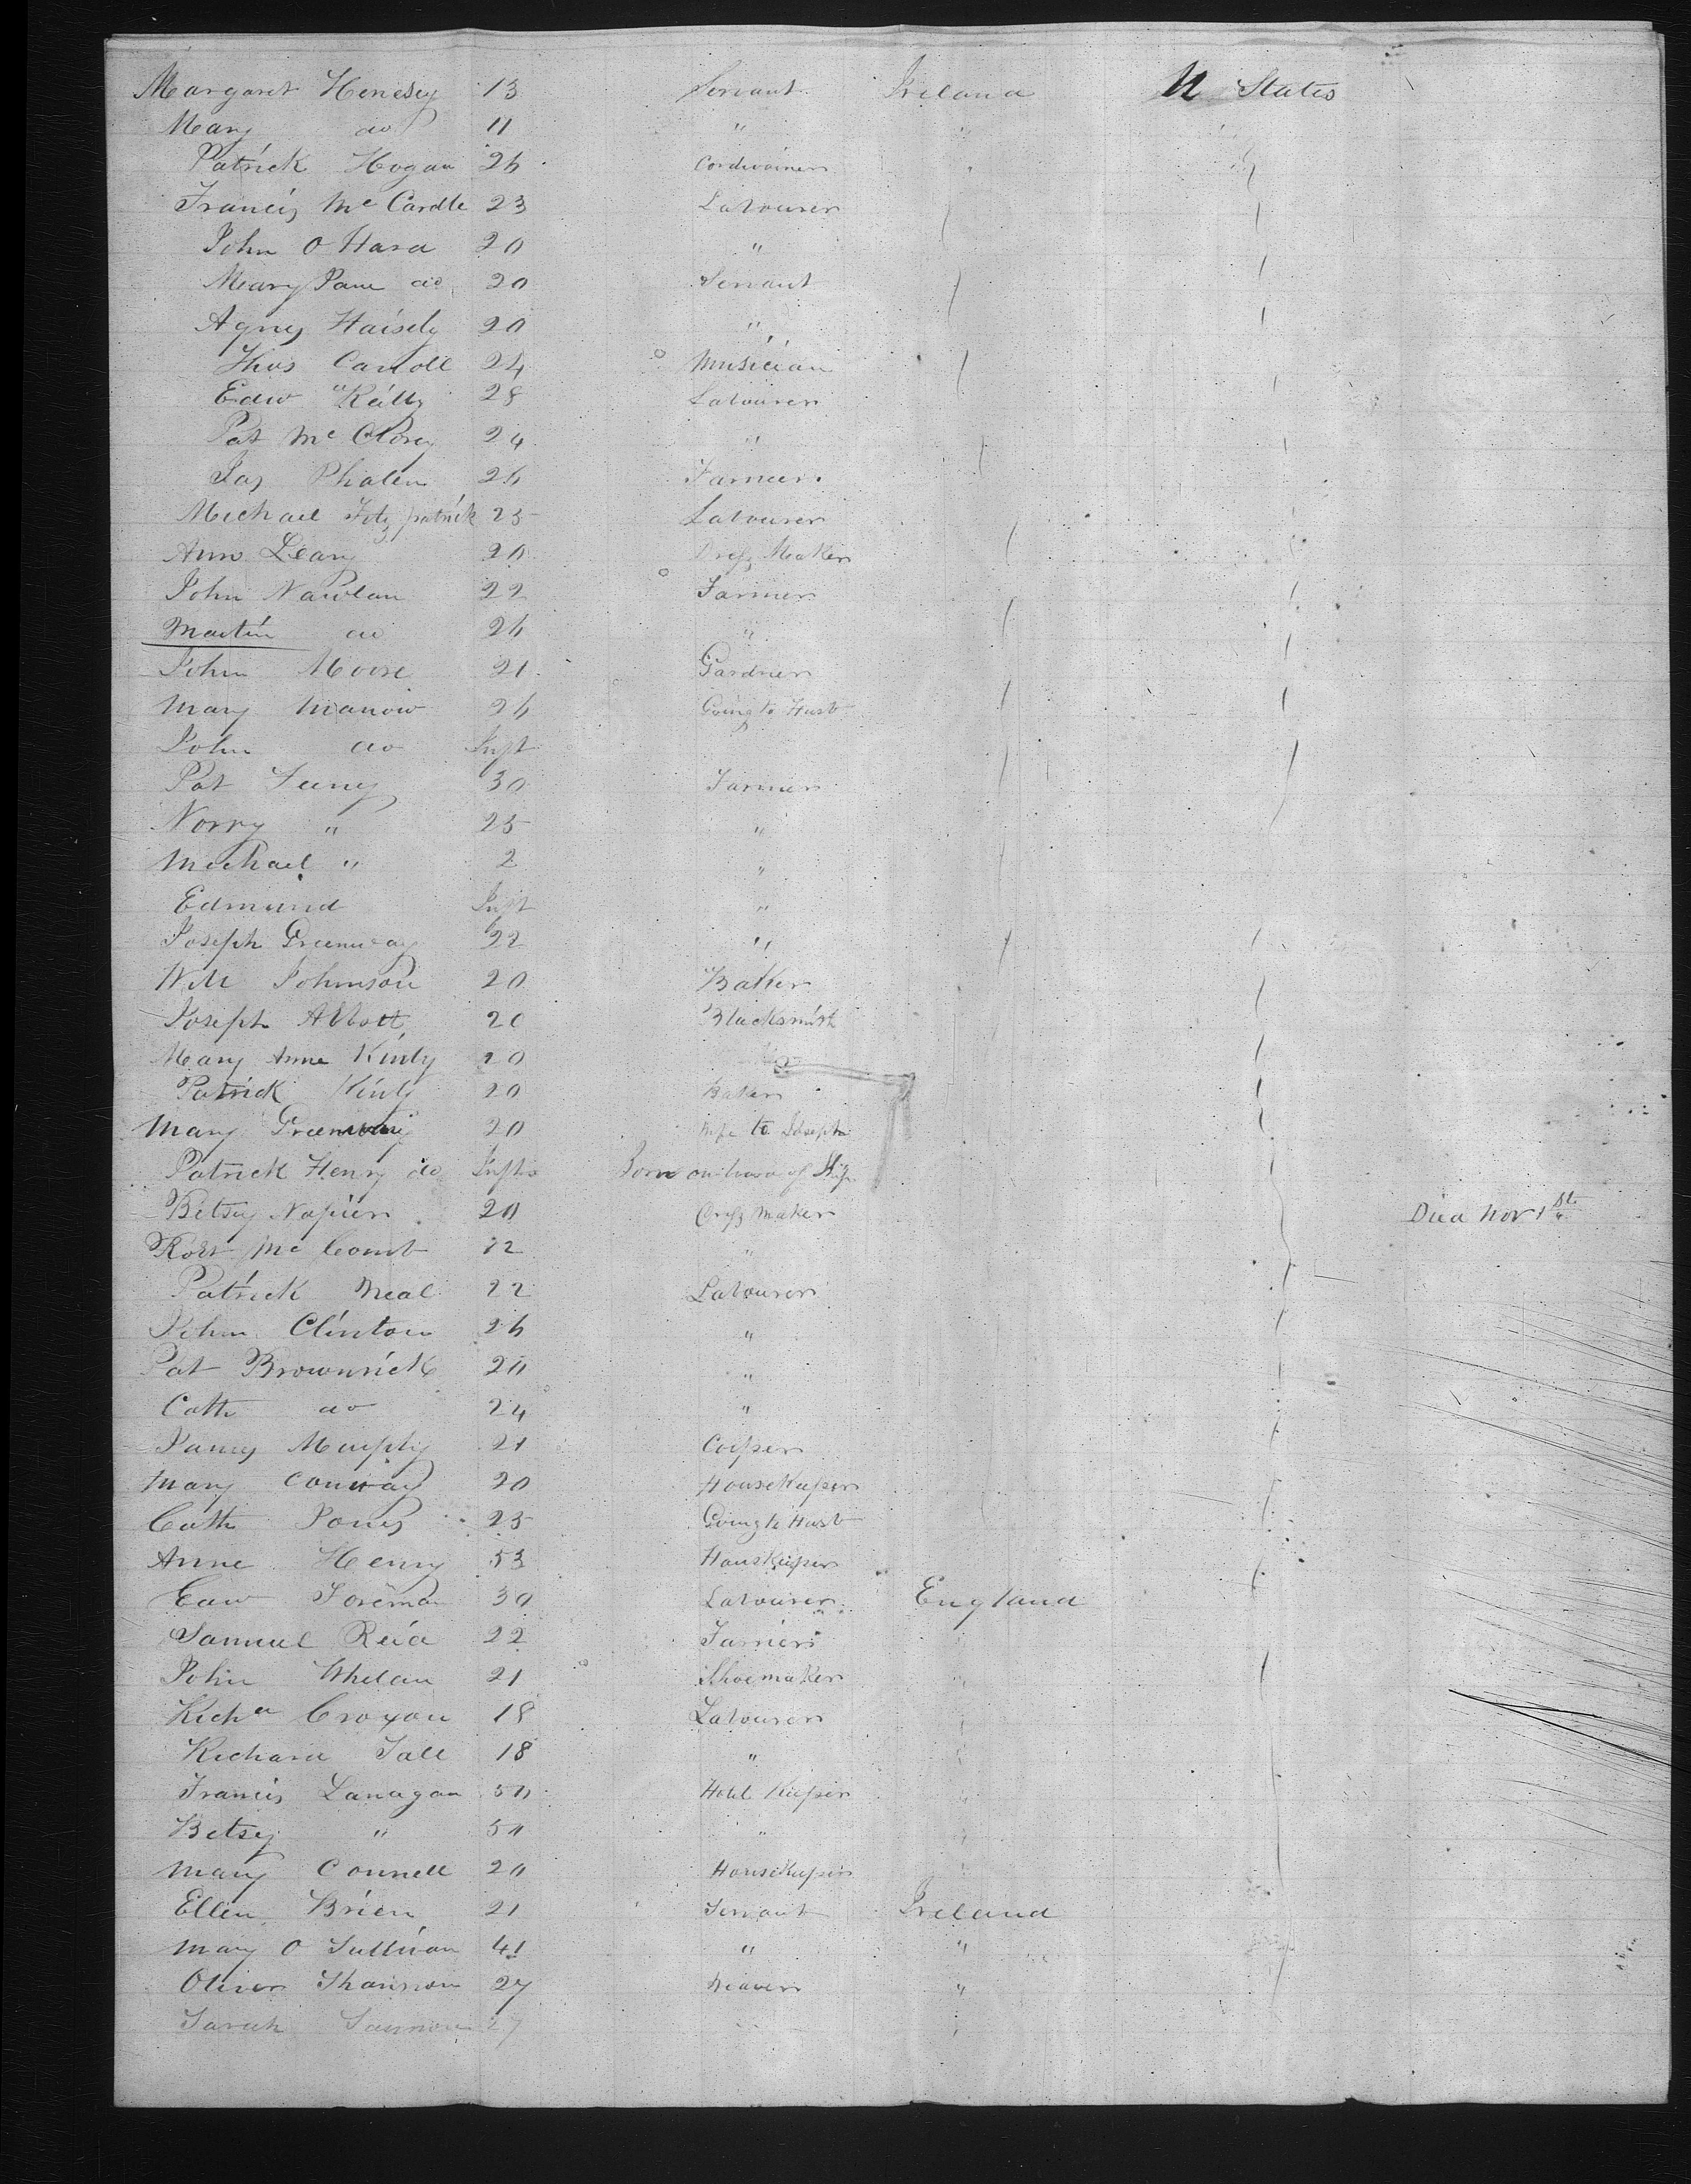 Margaret Henesey 13 Servant Ireland U States
Mary do 11 " "
Patrick Hogan 26 Cordwainer
Francis Mc Cardle 23 Labourer
John O Hara 20 "
Mary Jane do 20 Servant
Agnes Haisely 20 "
Thos Carroll 24 Musician
Edw "Reilly 28 Labourer
Pat Mc Clorey 24 "
Jas Phalen 26 Farmer
Michael Fitzpatrick 25 Labourer
Ann Leary 20 Dress Maker
John Nawlan 22 Farmer
Martin do 26 "
John Moore 21 Gardner
Mary Manow 26 Going to Husb
John do Inft
Pat Feeny 30 Farmer
Norry " 25 "
Michael " 2 "
Edmund Inft "
Joseph Greenway 22 "
Will Johnson 20 Baker
Joseph Abbott 20 Blacksmith
Mary Anne Kinly 20
Patrick Kinly 20 Baker
Mary Greenway 20 Wife to Joseph
Patrick Henry do Infts Born on board of Ship
Betsey Napier 20 Dress Maker Died Nov 1st
Robt Mc Comb 12 "
Patrick Neal 22 Labourer
John Clinton 26 "
Pat Brownrick 20 "
Cath do 24 "
James Murphy 21 Cooper
Mary Conway 20 HouseKeeper
Cath Jones 25 Going to Husb
Anne Henry 53 HousKeeper
Edw Foreman 30 Labourer England
Samuel Reid 22 Farrier "
John Whelan 21 Shoemaker "
Richd Croxon 18 Labourer "
Richard Tall 18 " "
Francis Lanagan 50 Hotel Keeper "
Betsy " 50 " "
Mary Connell 20 HouseKeeper "
Ellen Brien 21 Servant Ireland
Mary O Sullivan 41 " "
Oliver Shannon 27 Weaver "
Sarah 27 "